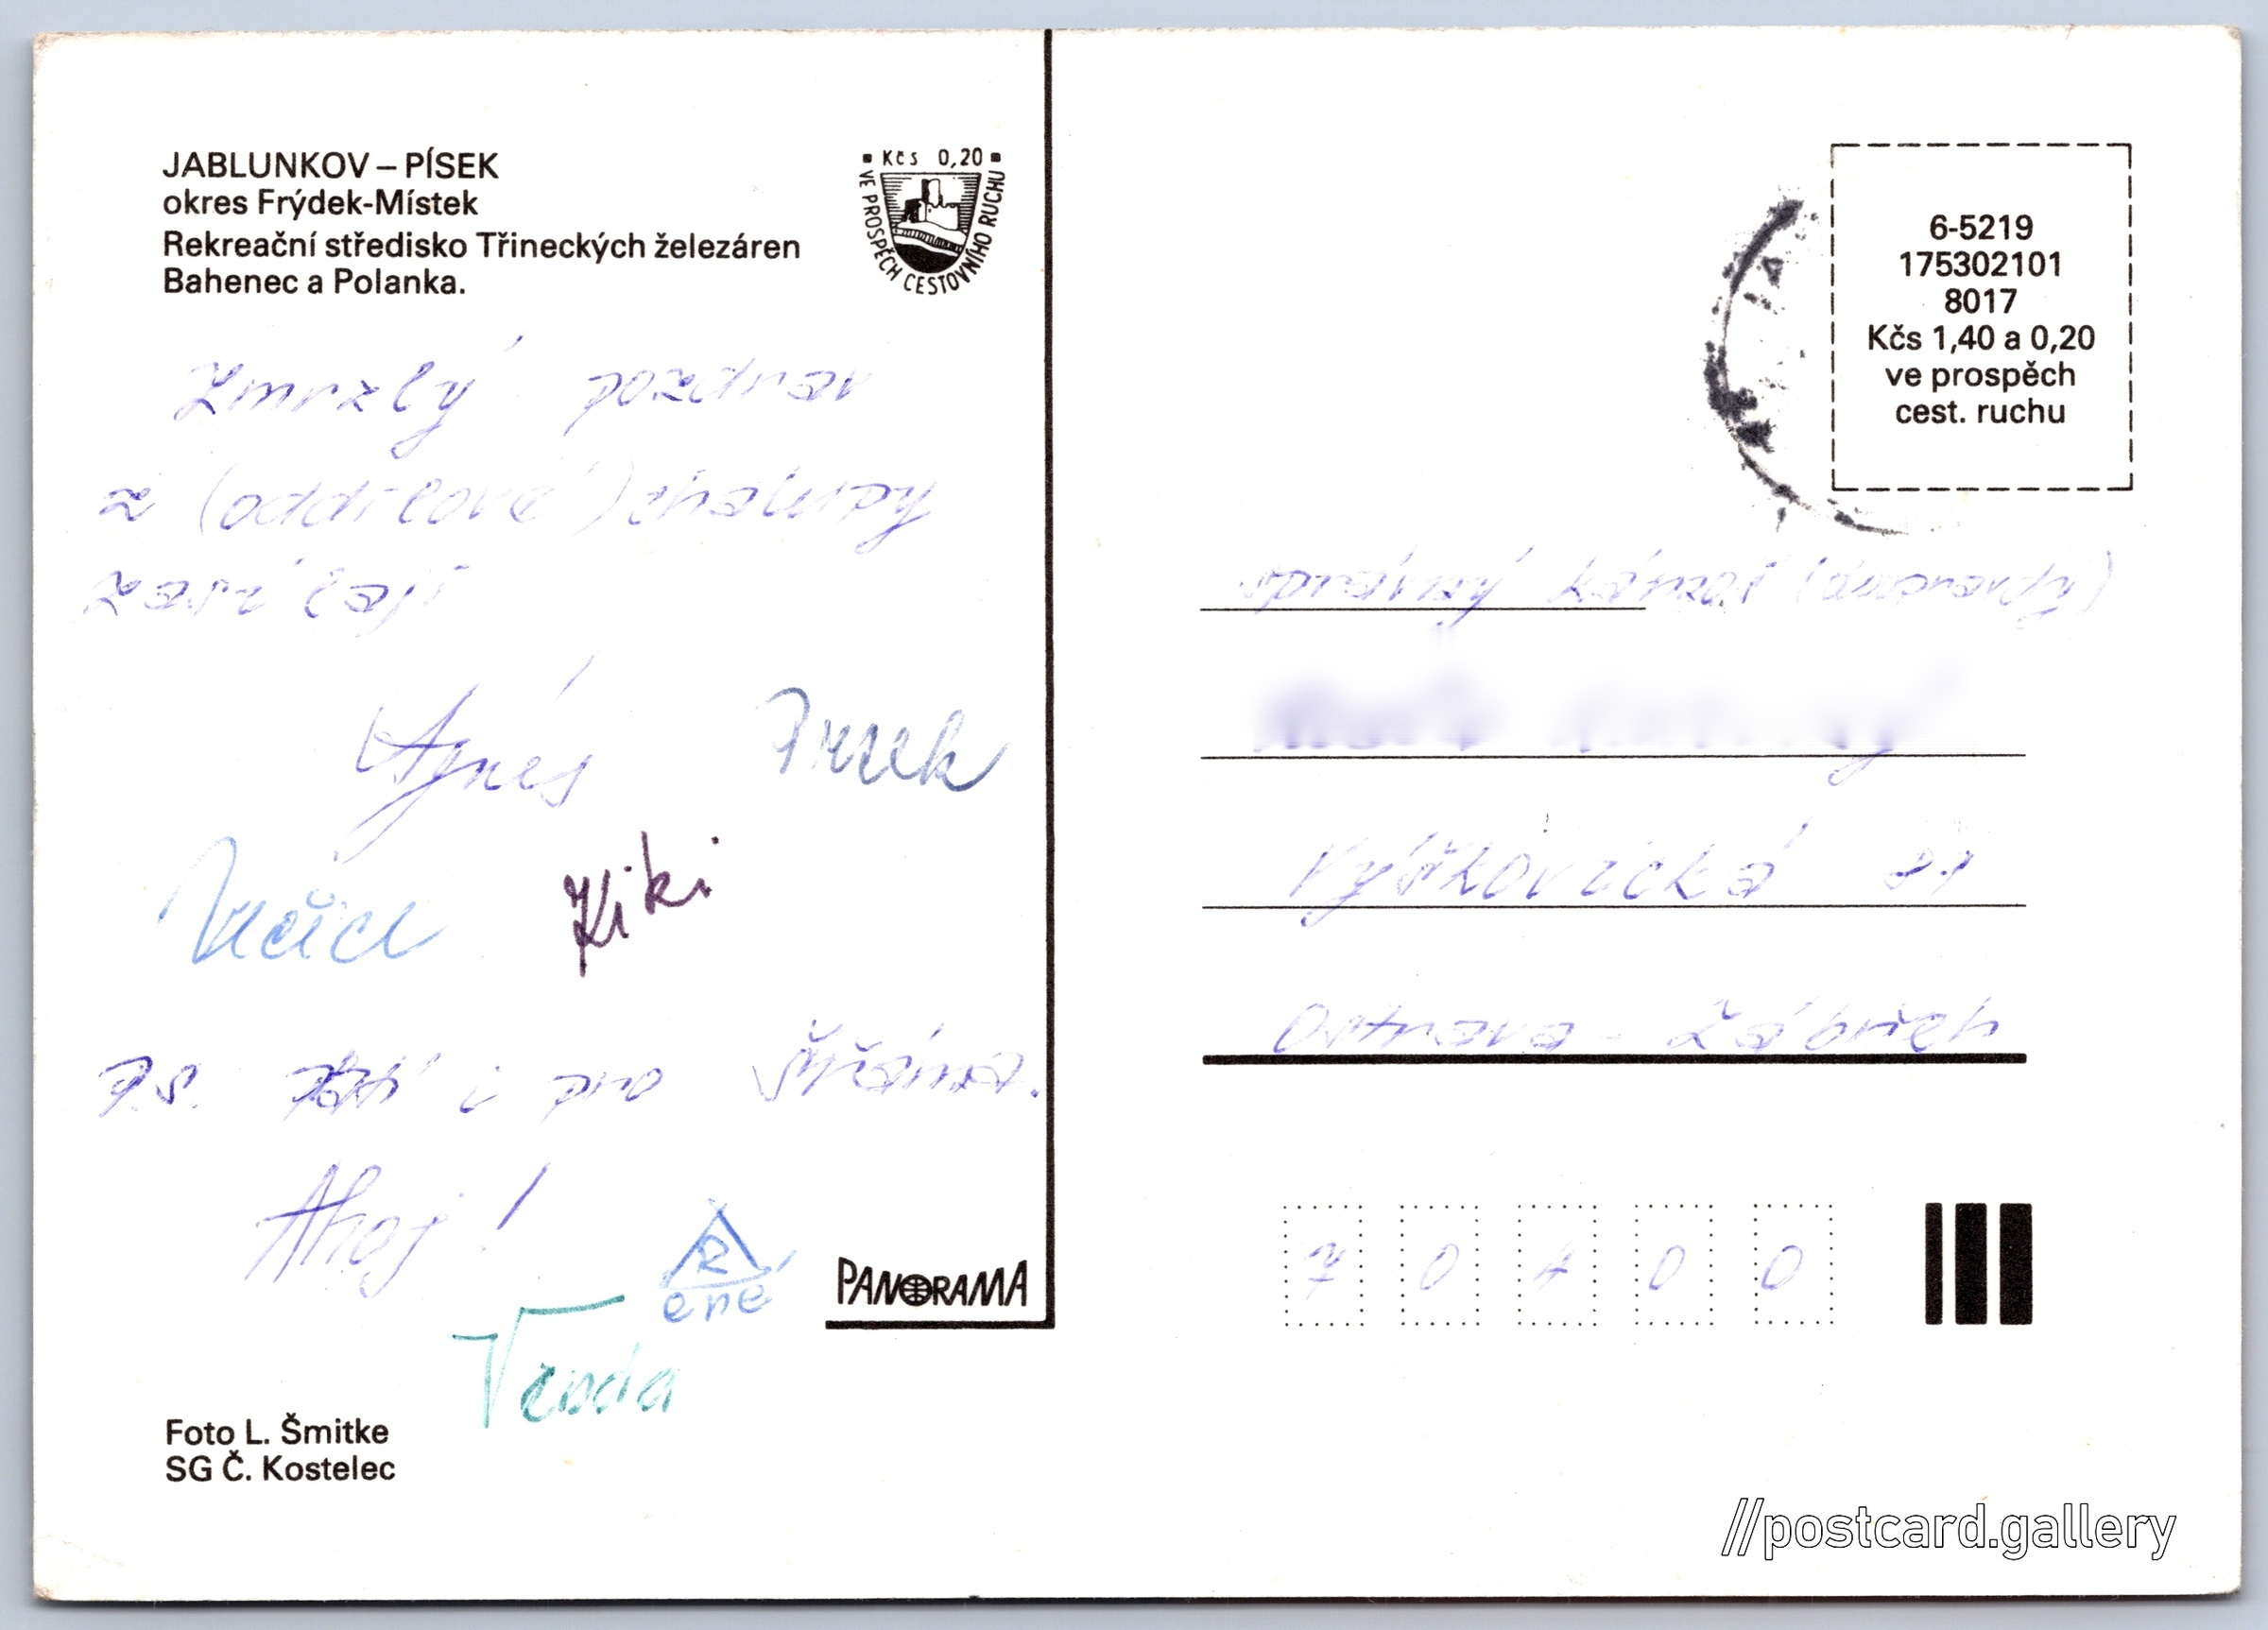 JABLUNKOV – PÍSEK
okres Frýdek-Místek
Rekreační středisko Třineckých železáren
Bahenec a Polanka.
Kčs 0,20
VE PROSPĚCH CESTOVNÍHO RUCHU
Zmrzlý pozdrav
z (oddílové) chalupy
zasílají
Agnés
Kiki
P.S. i pro
Ahoj!
René
Venda
PANORAMA
Foto L. Šmitke
SG Č. Kostelec
6-5219
175302101
8017
Kčs 1,40 a 0,20
ve prospěch
cest. ruchu
správný
Výškovická
Ostrava - Zábřeh
7 0 4 0 0
//postcard.gallery